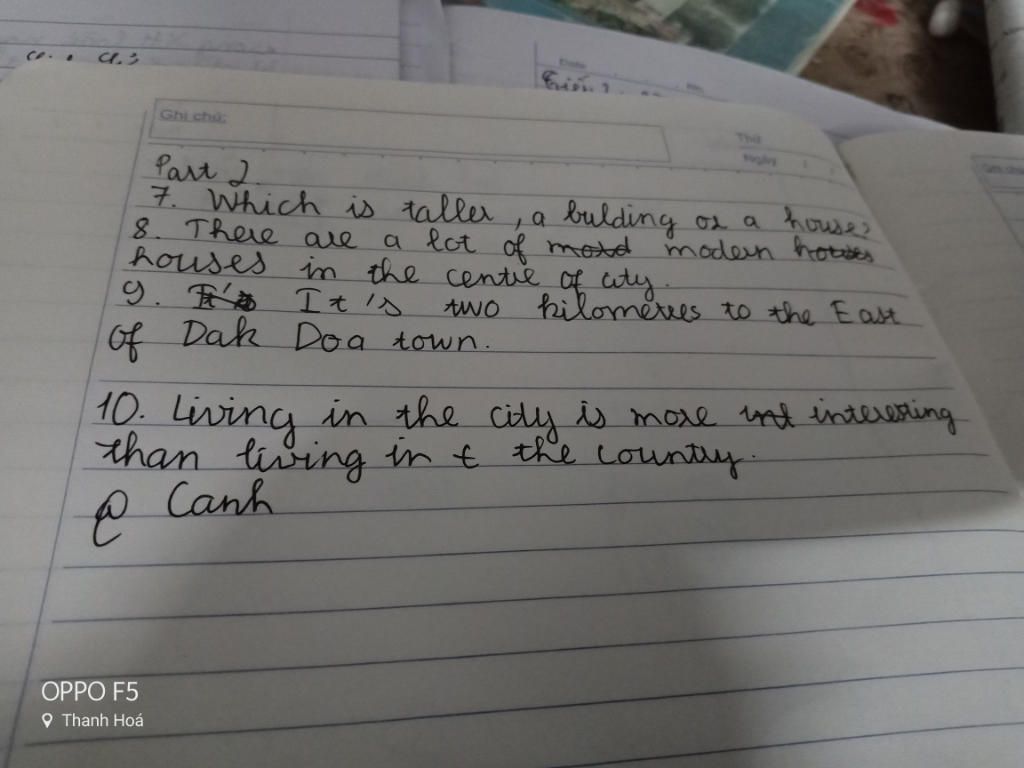 Ghi chú:
Thứ
Ngày
Part 2
7. Which is taller, a bulding or a house?
8. There are a lot of mord modern houses
houses in the centre of city.
9. It's It's two kilometres to the East
of Dak Doa town.
10. Living in the city is more int interesting
than living in t the country.
@ Canh
OPPO F5
Thanh Hoá